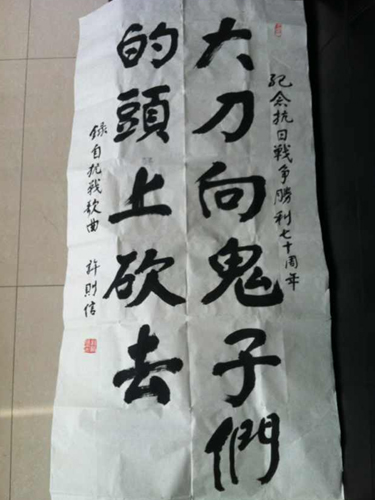 紀念抗日戰争勝利七十周年
大刀向鬼子們
的頭上砍去
錄自抗戰歌曲 許則信